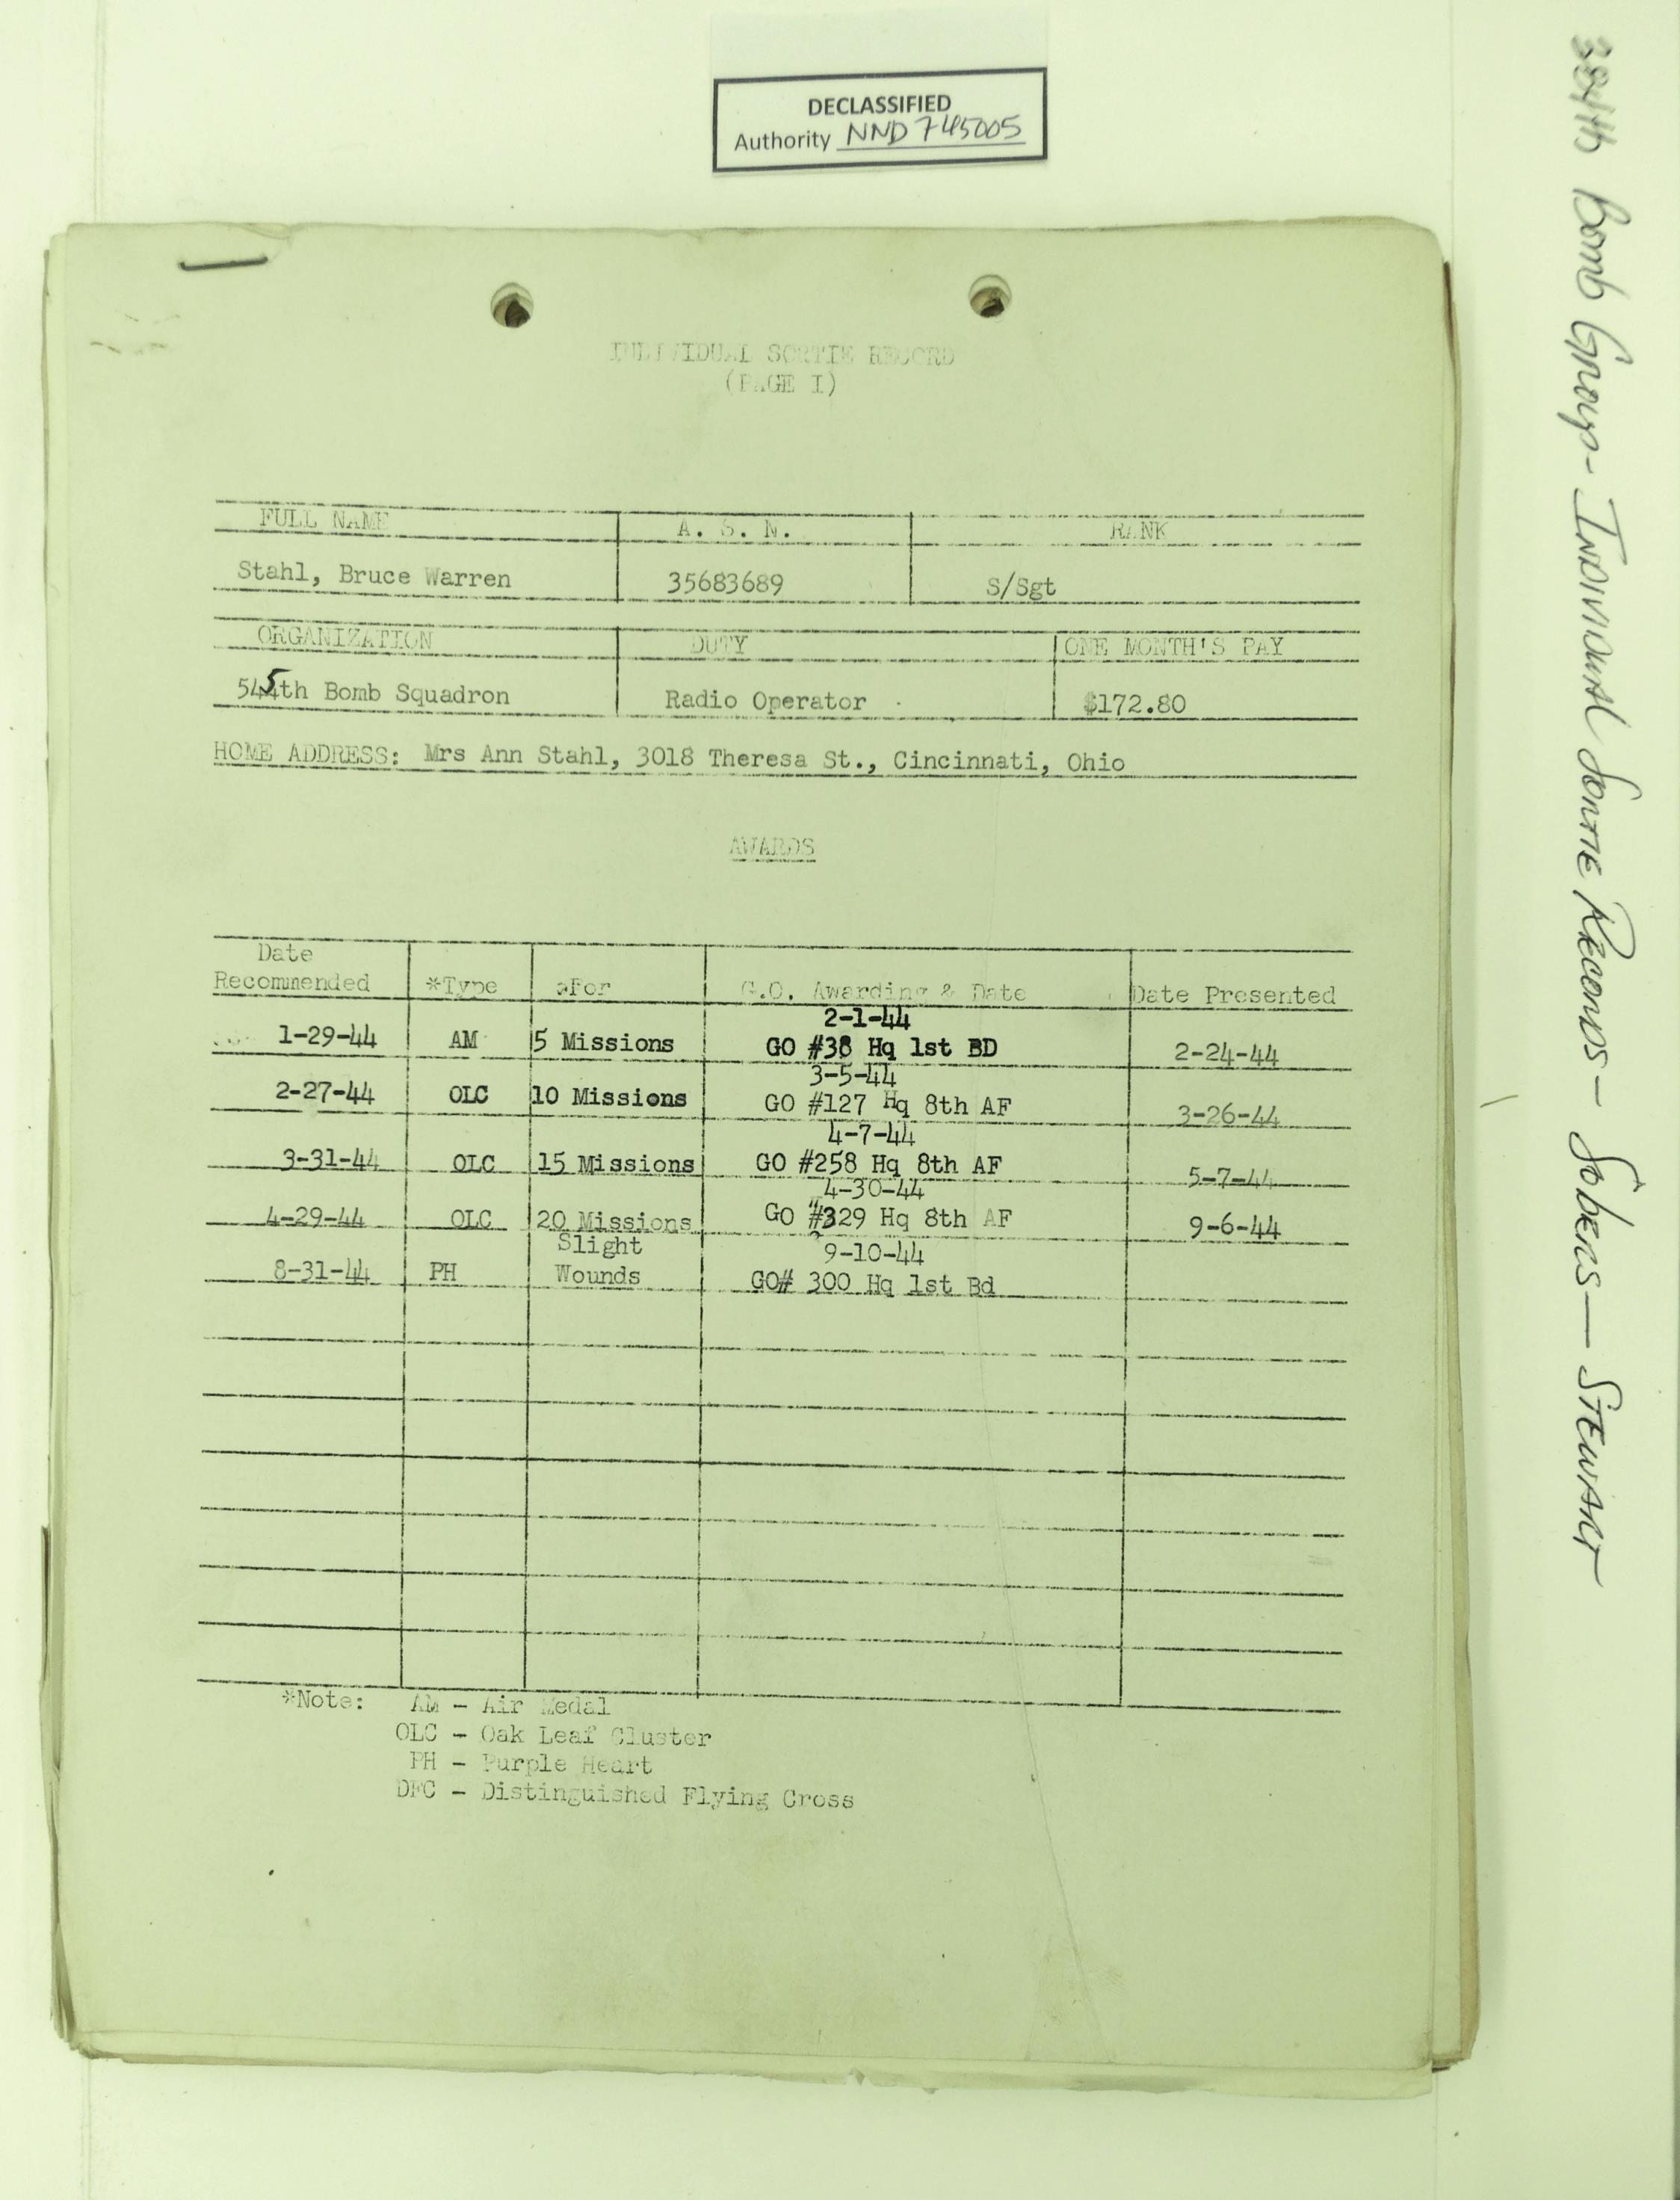 DECLASSIFIED
Authority NND 745005
384th Bomb Group - Individual Sortie Records - Sobers — Stewart
INDIVIDUAL SORTIE RECORD
(PAGE I)
FULL NAME A. S. N. RANK
Stahl, Bruce Warren 35683689 S/Sgt
ORGANIZATION DUTY ONE MONTH'S PAY
545th Bomb Squadron Radio Operator $172.80
HOME ADDRESS: Mrs Ann Stahl, 3018 Theresa St., Cincinnati, Ohio
AWARDS
Date
Recommended *Type *For G.O. Awarding & Date Date Presented
2-1-44
1-29-44 AM 5 Missions GO #38 Hq 1st BD 2-24-44
3-5-44
2-27-44 OLC 10 Missions GO #127 Hq 8th AF 3-26-44
4-7-44
3-31-44 OLC 15 Missions GO #258 Hq 8th AF 5-7-44
4-30-44
4-29-44 OLC 20 Missions GO #329 Hq 8th AF 9-6-44
Slight 9-10-44
8-31-44 PH Wounds GO# 300 Hq 1st Bd
*Note: AM - Air Medal
OLC - Oak Leaf Cluster
PH - Purple Heart
DFC - Distinguished Flying Cross